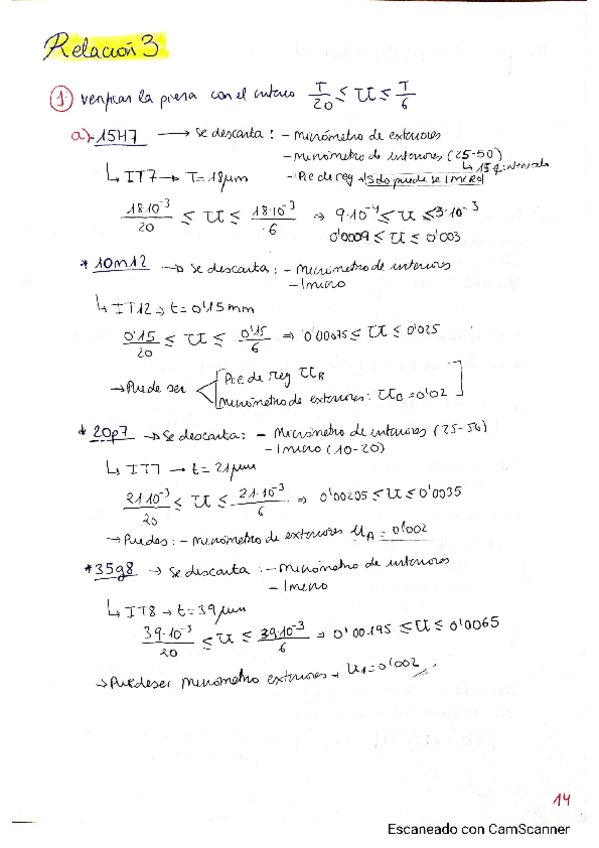 Relación 3
1. verificar la pieza con el criterio T/20 ≤ U ≤ T/6
a) - 15H7 → Se descarta: - Micrómetro de exteriores
- Micrómetro de interiores (25-50)
↳ 15 ∉ intervalo
↳ IT7 → T = 18 μm - Pie de reg → Sólo puede se IMICRO
18·10⁻³/20 ≤ U ≤ 18·10⁻³/6 ⇒ 9·10⁻⁴ ≤ U ≤ 3·10⁻³
0'0009 ≤ U ≤ 0'003
* 10m12 → Se descarta: - Micrometro de interiores
- Imicro
↳ IT12 → t = 0'15 mm
0'15/20 ≤ U ≤ 0'15/6 ⇒ 0'00075 ≤ U ≤ 0'025
→ Puede ser Pie de reg U_B
Micrómetro de exteriores: U_B = 0'02
* 20p7 → Se descarta: - Micrómetro de interiores (25-50)
- Imicro (10-20)
↳ IT7 → t = 21 μm
21·10⁻³/20 ≤ U ≤ 21·10⁻³/6 ⇒ 0'00205 ≤ U ≤ 0'0035
→ Puedes: - micrómetro de exteriores U_A = 0'002
* 35g8 → Se descarta: - Micrómetro de interiores
- Imicro
↳ IT8 → t = 39 μm
39·10⁻³/20 ≤ U ≤ 39·10⁻³/6 ⇒ 0'00195 ≤ U ≤ 0'0065
→ Puede ser micrómetro exteriores → U_A = 0'002
14
Escaneado con CamScanner